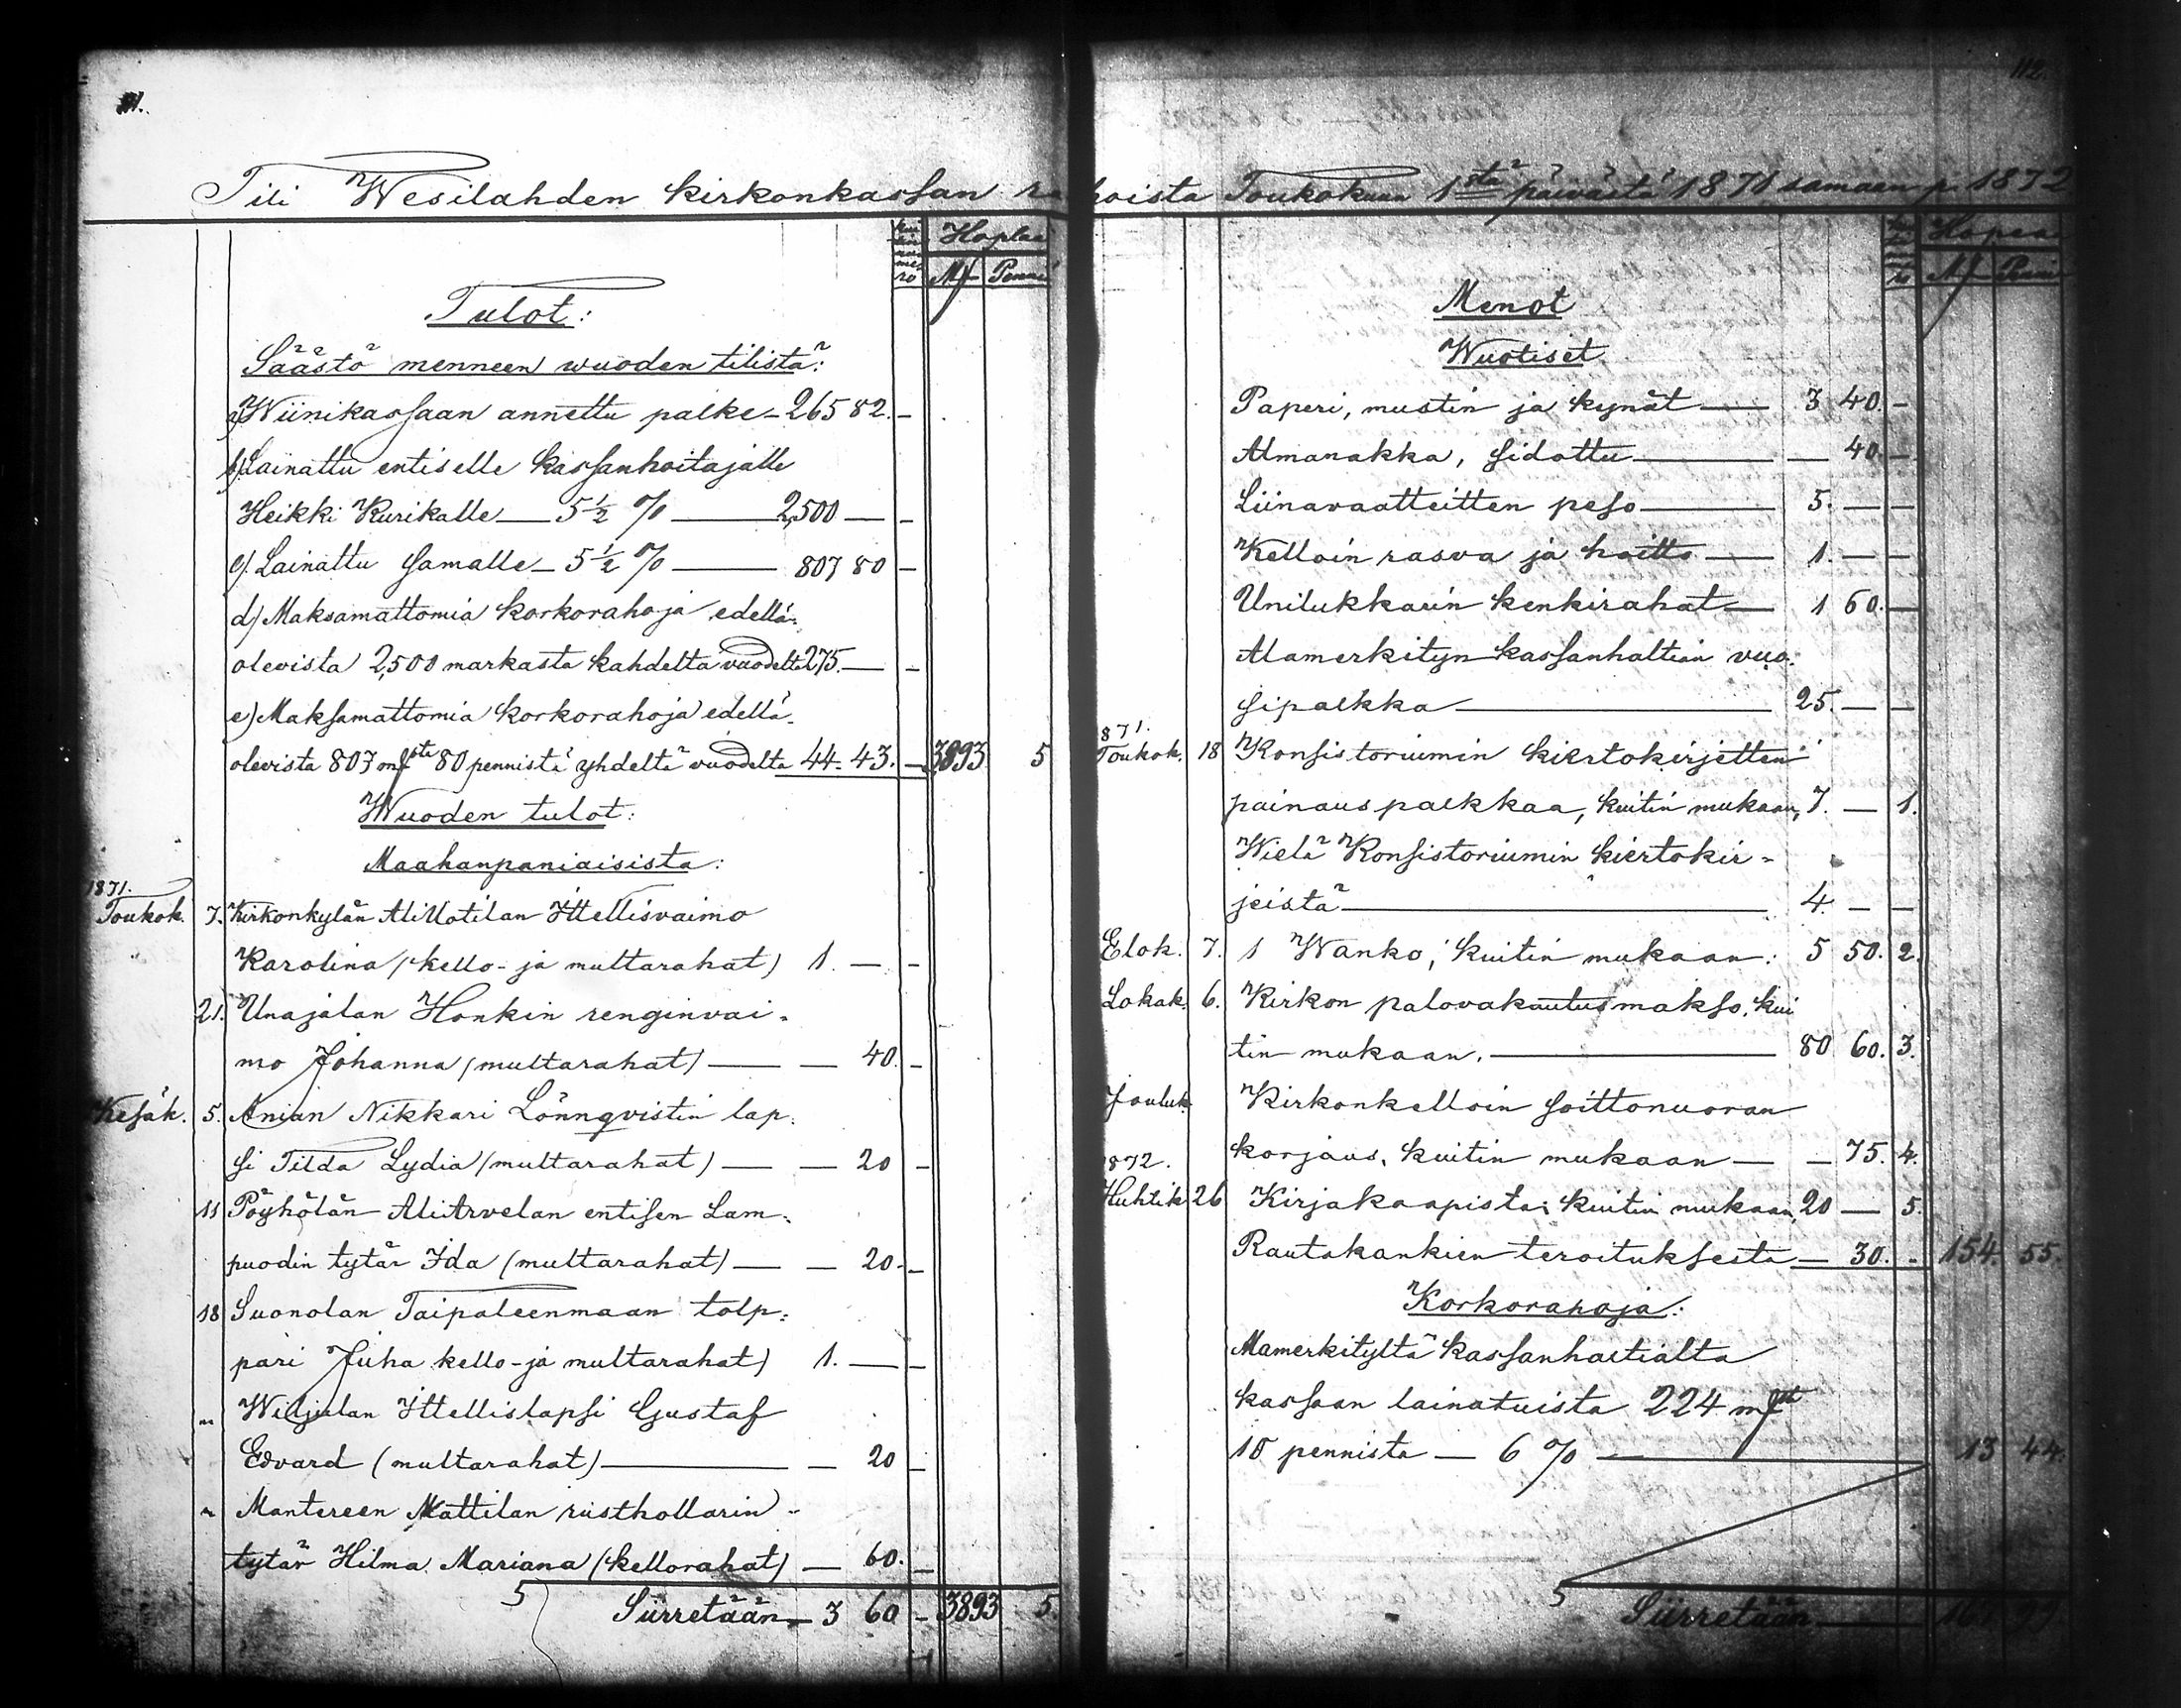 112.
Tili Wesilahden kirkonkassan ra hoista Toukokuun 1stä päivästä 1871 samaan p. 1872
Hopea
Mf Penni
Tulot:
Säästö menneen wuoden tilistä:
a) Wiinikassaan annettu palke - 265 82. -
b) Lainattu entiselle kassanhoitajalle
Heikki Kurikalle — 5 1/2 % — 2,500 — -
c) Lainattu samalle - 5 1/2 % — 807 80 -
d) Maksamattomia korkorahoja edellä-
olevista 2,500 markasta kahdelta vuodelta 275. — -
e) Maksamattomia korkorahoja edellä-
olevista 807 mf sta 80 pennistä yhdeltä vuodelta 44. 43. - 3893 5
Wuoden tulot:
Maahanpaniaisista:
1871.
Toukok. 7. Kirkonkylän AliUotilan Ittellisvaimo
Karolina (kello- ja multarahat) 1. — -
21. Unajalan Honkin renginvai-
mo Johanna (multarahat) — — 40. -
Kesäk. 5. Anian Nikkari Lönnqvistin lap-
si Tilda Lydia (multarahat) — — 20 -
11 Pöyhölän AliArvelan entisen Lam-
puodin tytär Ida (multarahat) — — 20. -
18 Suonolan Taipaleenmaan tolp-
pari Juha kello- ja multarahat) 1. — -
" Wiljalan Ittellislapsi Gustaf
Edvard (multarahat) — — 20 -
" Mantereen Mattilan rusthollarin
tytär Hilma Mariana (kellorahat) — 60. -
Siirretään - 3 60 - 3893 5.
Hopea
Mf Penni
Menot
Wuotiset
Paperi, mustin ja kynät — 3 40. -
Almanakka, sidottu — — 40. -
Liinavaatteitten peso — 5. — -
Kelloin rasva ja hoitto — 1. — -
Unilukkarin kenkirahat — 1 60. -
Alamerkityn kassanhaltian vuo-
sipalkka — 25. — -
1871.
Toukok. 18 Konsistoriumin kiertokirjetten
painauspalkkaa, kuitin mukaan, 7. — 1.
Wielä Konsistoriumin kiertokir-
jeistä — 4. — -
Elok. 7. 1 Wanko, kuitin mukaan: 5 50. 2.
Lokak. 6. Kirkon palovakautusmakso, kui
tin mukaan. — 80 60. 3.
Jouluk. Kirkonkelloin soittonuoran
korjaus, kuitin mukaan — — 75. 4.
1872.
Huhtik 26 Kirjakaapista; kuitin mukaan, 20 — 5.
Rautakankien teroituksesta — 30. - 154. 55.
Korkorahoja:
Alamerkityltä kassanhaltialta
kassaan lainatuista 224 mf
10 pennistä — 6 % — 13 44.
Siirretään — 167 99